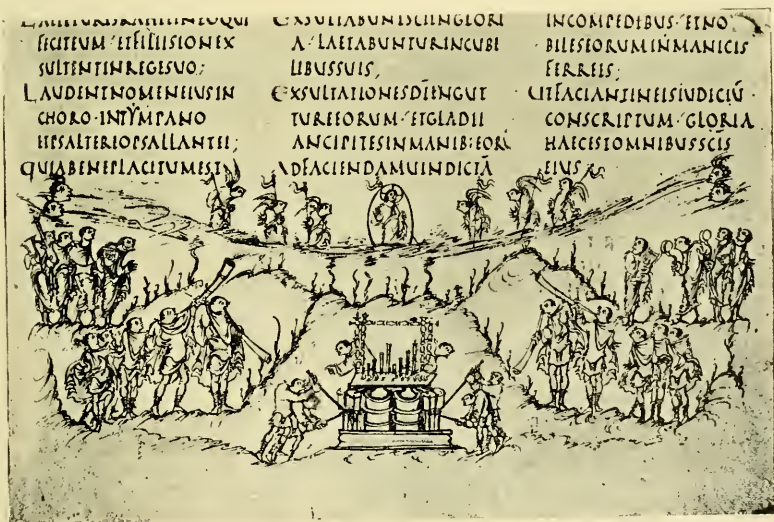 INEOQUI
FECITEUM· ETFILIISIONEX
SULTENTINREGESUO;
LAUDENTNOMENEIUSIN
CHORO·INTYMPANO
ETPSALTERIOPSALLANTEI;
QUIABENEPLACITUMEST
EXSULTABUNTSCIINGLORI
A·LAETABUNTURINCUBI
LIBUSSUIS,
EXSULTATIONESDĪINGUT
TUREEORUM·ETGLADII
ANCIPITESINMANIB:EORŪ
ADFACIENDAMUINDICTĀ
INCOMPEDIBUS·ETNO
BILESEORUMINMANICIS
FERREIS;
UTFACIANTINEISIUDICIŪ
CONSCRIPTUM·GLORIA
HAECESTOMNIBUSSCĪS
EIUS